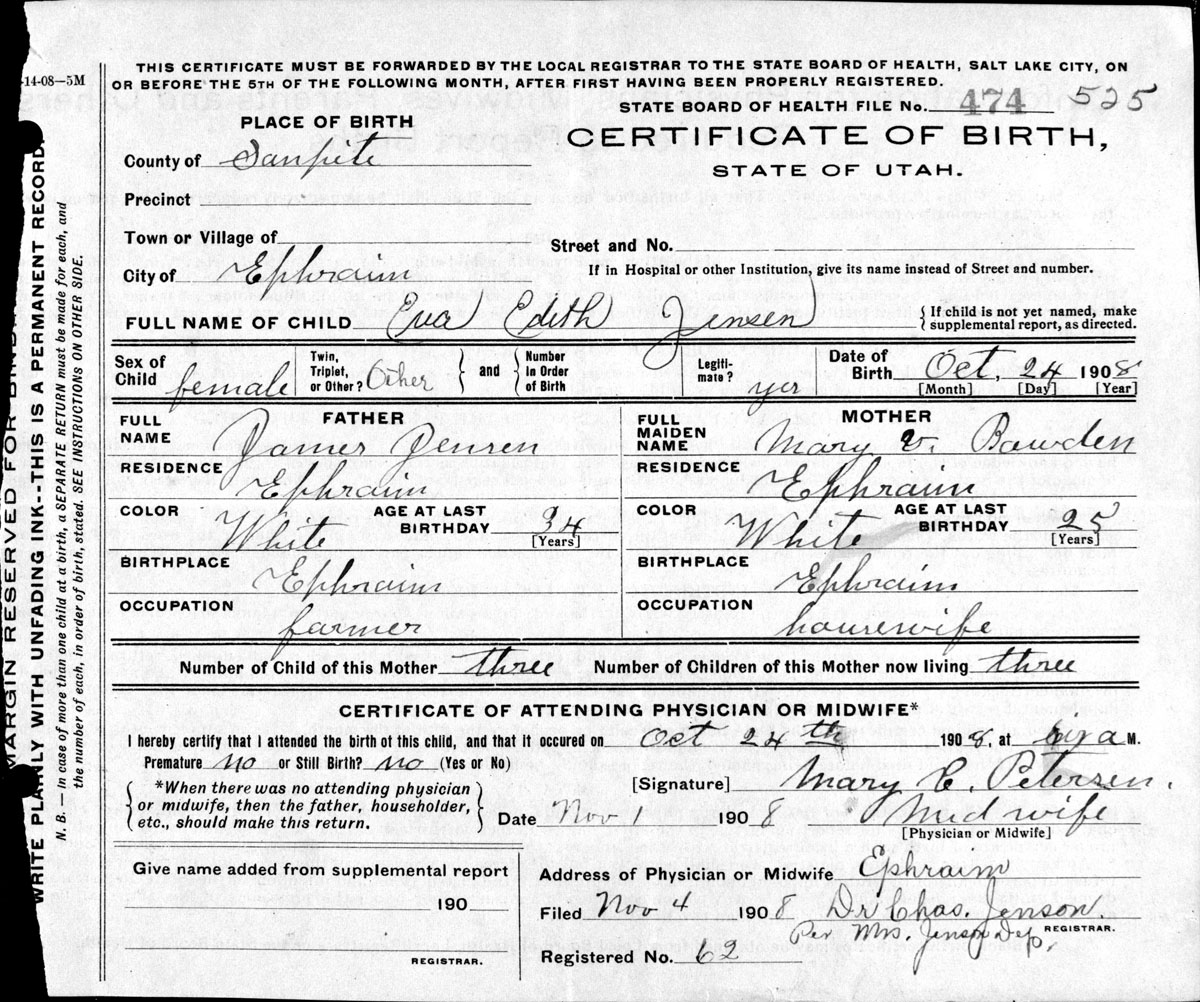 -14-08—5M
THIS CERTIFICATE MUST BE FORWARDED BY THE LOCAL REGISTRAR TO THE STATE BOARD OF HEALTH, SALT LAKE CITY, ON
OR BEFORE THE 5TH OF THE FOLLOWING MONTH, AFTER FIRST HAVING BEEN PROPERLY REGISTERED.
STATE BOARD OF HEALTH FILE No. 474 525
PLACE OF BIRTH
CERTIFICATE OF BIRTH,
STATE OF UTAH.
County of Sanpete
Precinct
Town or Village of
Street and No.
City of Ephraim
If in Hospital or other Institution, give its name instead of Street and number.
FULL NAME OF CHILD Eva Edith Jensen { If child is not yet named, make
supplemental report, as directed.
Sex of Child female Twin, Triplet, or Other? Other } and { Number In Order of Birth Legiti-mate? yes Date of Birth Oct, 24 1908
[Month] [Day] [Year]
FATHER
FULL NAME James Jensen
RESIDENCE Ephraim
COLOR White AGE AT LAST BIRTHDAY 34 [Years]
BIRTHPLACE Ephraim
OCCUPATION farmer
MOTHER
FULL MAIDEN NAME Mary V. Bawden
RESIDENCE Ephraim
COLOR White AGE AT LAST BIRTHDAY 25 [Years]
BIRTHPLACE Ephraim
OCCUPATION housewife
Number of Child of this Mother three Number of Children of this Mother now living three
CERTIFICATE OF ATTENDING PHYSICIAN OR MIDWIFE*
I hereby certify that I attended the birth of this child, and that it occured on Oct 24th 1908, at A M.
Premature no or Still Birth? no (Yes or No)
[Signature] Mary C. Petersen.
*When there was no attending physician
or midwife, then the father, householder,
etc., should make this return.
Date Nov 1 1908 Midwife
[Physician or Midwife]
Give name added from supplemental report
190
REGISTRAR.
Address of Physician or Midwife Ephraim
Filed Nov 4 1908 Dr Chas. Jenson.
REGISTRAR.
Per Mrs. Jenson Dep.
Registered No. 62
MARGIN RESERVED FOR
WRITE PLAINLY WITH UNFADING INK--THIS IS A PERMANENT RECORD.
N. B.—In case of more than one child at a birth, a SEPARATE RETURN must be made for each, and
the number of each, in order of birth, stated. SEE INSTRUCTIONS ON OTHER SIDE.